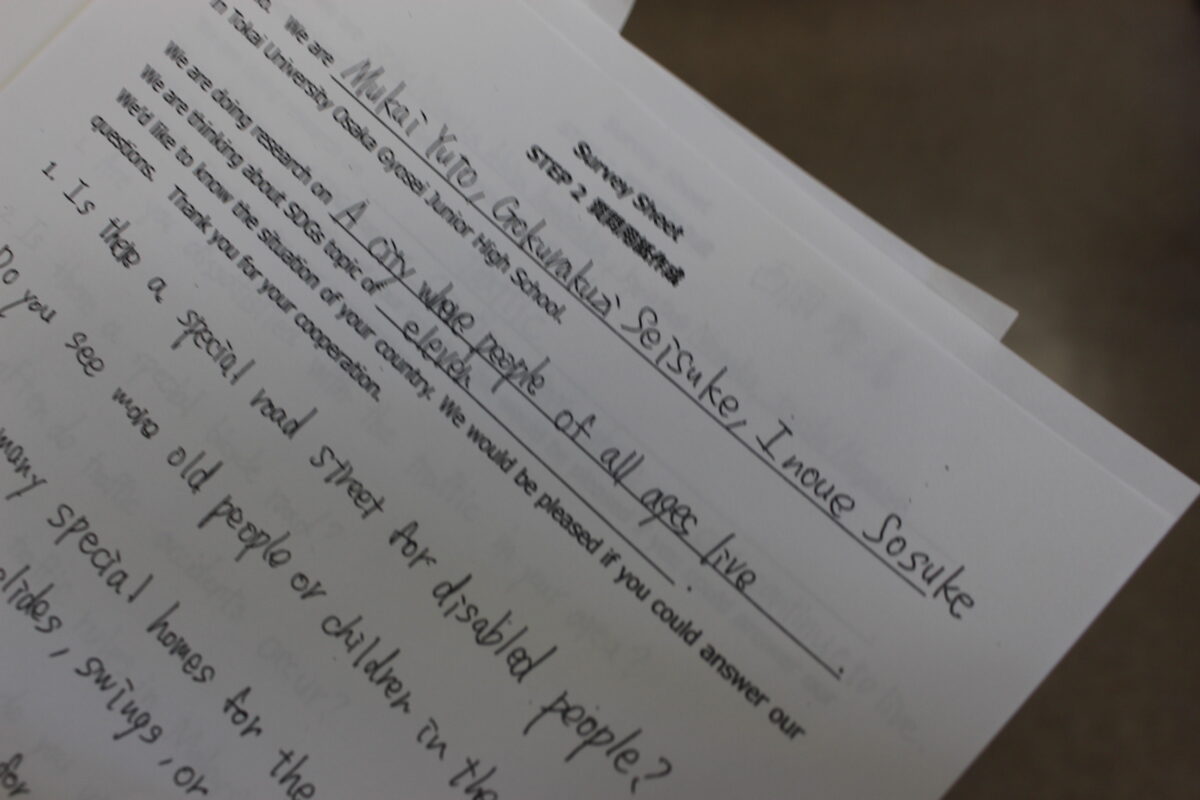 Survey Sheet
STEP 2 質問用紙作成
We are Mukai Yuto, Gokurakuzi Seisuke, Inoue Sosuke
in Tokai University Osaka Gyosei Junior High School.
We are doing research on A city where people of all ages live.
We are thinking about SDGs topic of eleven.
We'd like to know the situation of your country. We would be pleased if you could answer our
questions. Thank you for your cooperation.
1. Is there a special road street for disabled people?
Do you see more old people or children in the
many special homes for the
slides, swings, or
for